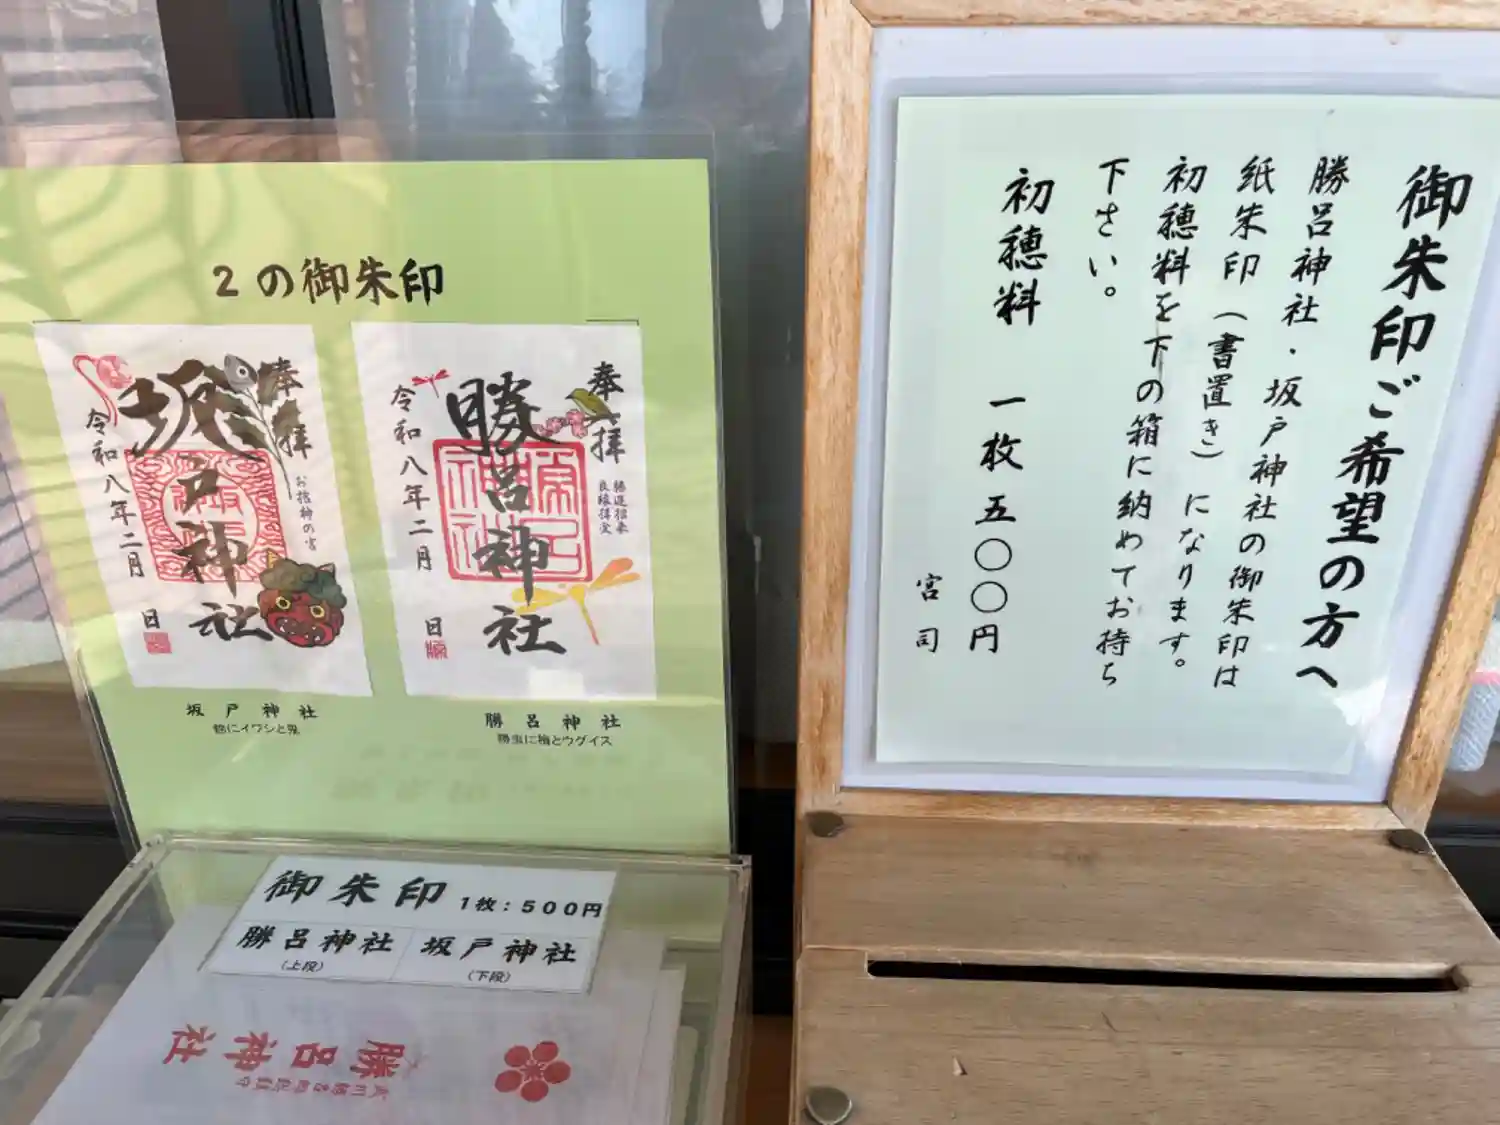 2の御朱印
奉拝
坂戸神社
お諏神の宮
令和八年二月
日
奉拝
勝呂神社
勝運招来
良縁得室
令和八年二月
日
坂戸神社
鶴にイワシと鬼
勝呂神社
勝虫に梅とウグイス
御朱印 1枚:500円
勝呂神社
(上段)
坂戸神社
(下段)
勝呂神社
御朱印ご希望の方へ
勝呂神社・坂戸神社の御朱印は
紙朱印(書置き)になります。
初穂料を下の箱に納めてお持ち
下さい。
初穂料 一枚 五〇〇円
宮司